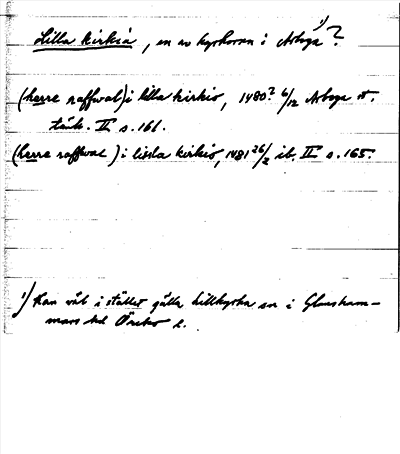 Lilla kirkiä, en av kyrkorna i Arboga 1)?
(herre raffwal) i lilla kirkio, 1480? 6/12 Arboga st.
tänk. II s. 161.
(herre raffwal) i lissla kirkio, 1481 26/2 ib. II s. 165.
1) Kan väl i stället gälla Lillkyrka sn i Glansham-
mars hd Örebro l.